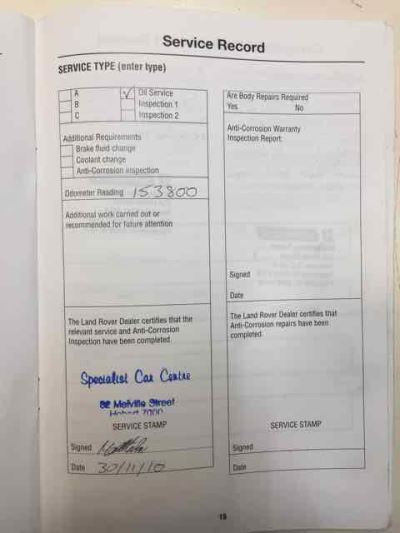 Service Record
SERVICE TYPE (enter type)
A
✓ Oil Service
B
Inspection 1
C
Inspection 2
Additional Requirements
Brake fluid change
Coolant change
Anti-Corrosion inspection
Odometer Reading 153800
Additional work carried out or
recommended for future attention
The Land Rover Dealer certifies that the
relevant service and Anti-Corrosion
Inspection have been completed.
Specialist Car Centre
82 Melville Street
Hobart 7000
SERVICE STAMP
Signed
Date 30/11/10
Are Body Repairs Required
Yes No
Anti-Corrosion Warranty
Inspection Report:
Signed
Date
The Land Rover Dealer certifies that
Anti-Corrosion repairs have been
completed.
SERVICE STAMP
Signed
Date